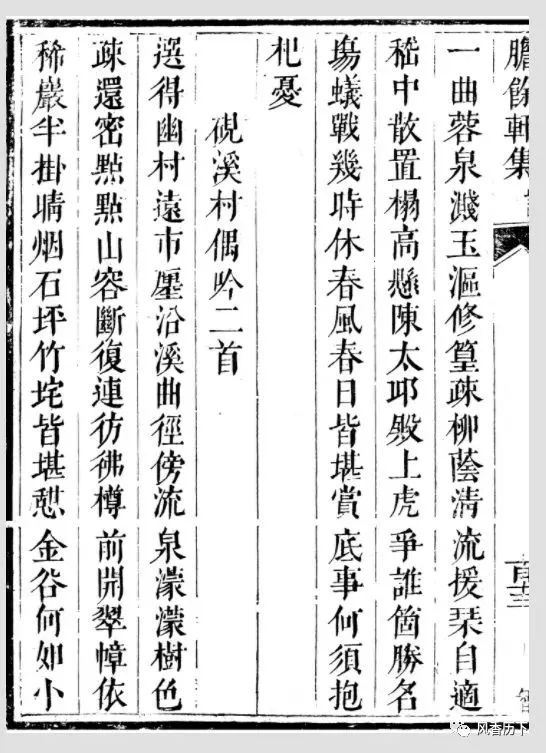 膽餘軒集
一曲蓉泉濺玉漚修篁疎柳蔭清流援琹自適
嵇中散置榻高懸陳太邱殿上虎爭誰箇勝名
場蟻戰幾時休春風春日皆堪賞底事何須抱
杞憂
硯溪村偶吟二首
選得幽村遠市廛沿溪曲徑傍流泉濛濛樹色
疎還密點點山容斷復連彷彿樽前開翠幛依
稀巖半掛晴烟石坪竹垞皆堪憇金谷何如小
风香历下